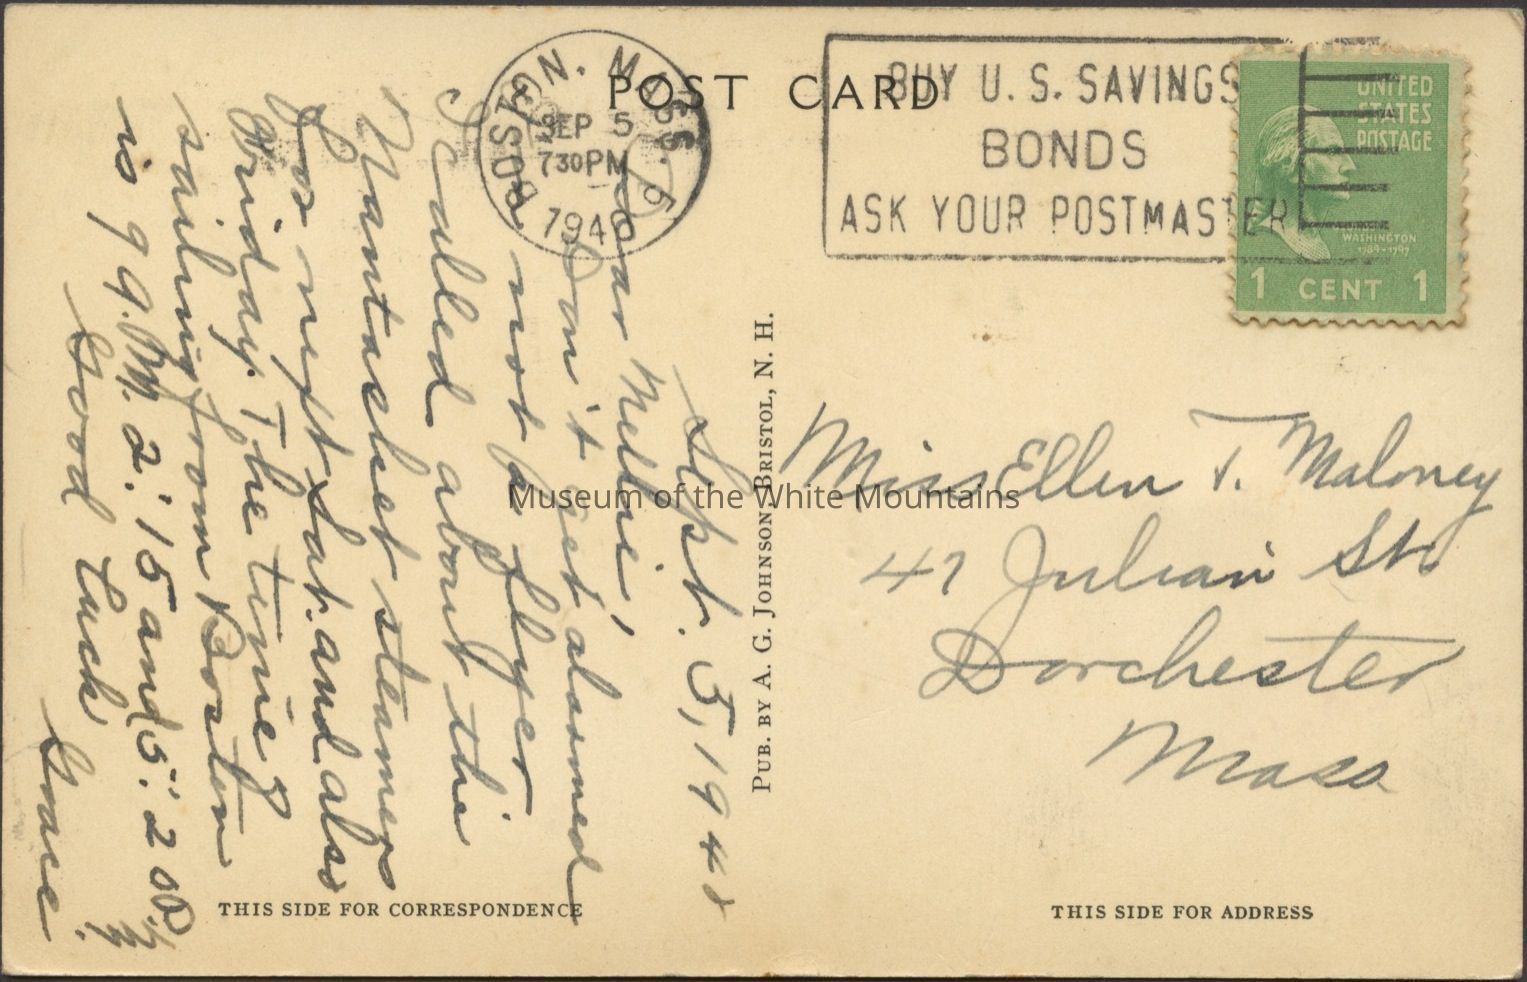 POST CARD
BOSTON, MASS. 6
SEP 5
730PM
1946
BUY U. S. SAVINGS
BONDS
ASK YOUR POSTMASTER
UNITED
STATES
POSTAGE
WASHINGTON
1789-1797
1 CENT 1
Sept. 5, 194
Dear Nellie,
Don't get alarmed
not a flyer
I called about the
Nantasket steamer
for next Sat. and also
Friday. The time 9
sailing from Boston
is 9 9.M. 2:15 and 5:20 P.M.
Good Luck
Grace.
PUB. BY A. G. JOHNSON, BRISTOL, N. H.
Miss Ellen T. Maloney
47 Julian St.
Dorchester
Mass
Museum of the White Mountains
THIS SIDE FOR CORRESPONDENCE
THIS SIDE FOR ADDRESS